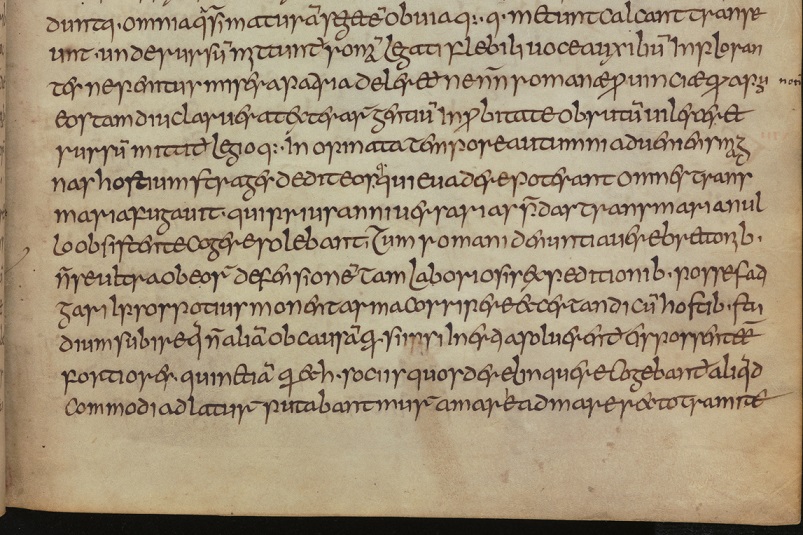 duntq; omnia q̄si maturā segetē obuia q;· q· metunt calcant transe
unt· unde rursū mittunt̄ romā legati flebili uoce auxiliū inploran
tes ne penitus misera patria deleret̄ ne nōn romanæ ꝓuinciæ qđ apud
eos tam diu claruerat exterarū gentiū inꝓbitate obrutū uilesceret
rursū mittit̄ legio q;· inopinata tempore autumni adueniens mag
nas hostium strages dedit eosq; qui euadere poterant omnes trans
maria fugauit· qui prius anniuersarias p̄das trans maria nul
lo obsistente cogere solebant· Tum romani denuntiauere brettonib·
n̄ se ultra ob eoꝝ defensionē tam laboriosis expeditionib· posse fati
gari ipsos potius monent arma corripere et certandi cū hostib· stu
dium subire q̄ n̄ aliā ob causā quā si ipsi inertia soluerent̄ eis possent ēē
fortiores· quin etiā qđ et h· sociis quos derelinquere cogebant̄ aliqd
commodi adlaturū putabant murū a mare ad mare recto tramite